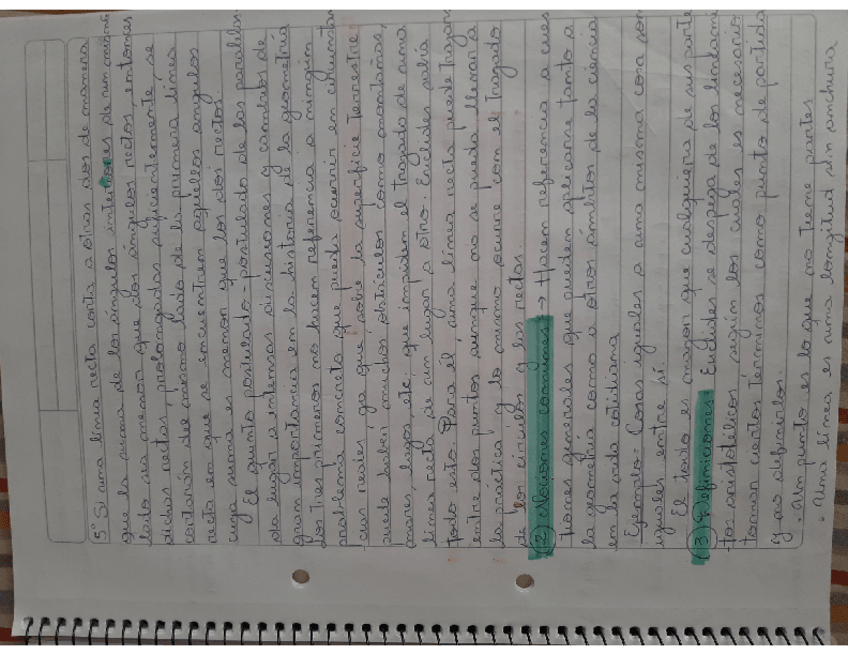 5º Si una línea recta corta a otras dos de manera
que la suma de los ángulos interiores de un mismo
lado sea menor que dos ángulos rectos, entonces
dichas rectas, prolongadas suficientemente se
cortarán del mismo lado de la primera línea
recta en que se encuentren aquellos ángulos
cuya suma es menor que los dos rectos.
El quinto postulado - postulado de las paralelas
da lugar a intensas discusiones y cambios de
gran importancia en la historia de la geometría
Los tres primeros no hacen referencia a ningún
problema concreto que pueda ocurrir en
reales ya que, sobre la superficie Terrestre
puede haber muchos obstáculos como montañas,
mares, lagos, etc; que impiden el trazado de una
línea recta de un lugar a otro. Euclides sabía
todo esto. Para él, una línea recta puede trazarse
entre dos puntos aunque no se pueda llevar a
la práctica y lo mismo ocurre con el trazado
de los círculos y las rectas.
(2) Nociones comunes → Hacen referencia a
generales que pueden aplicarse tanto a
la geometría como a otros ámbitos de la ciencia
en la vida cotidiana
Ejemplo: Cosas iguales a una misma cosa son
iguales entre sí.
El todo es mayor que cualquiera de sus parte
(3) Definiciones: Euclides se despega de los
aristotélicos según los cuales es necesario
tomar ciertos términos como punto de partida
y no definirlos.
· Un punto es lo que no tiene partes
· Una línea es una longitud sin anchura